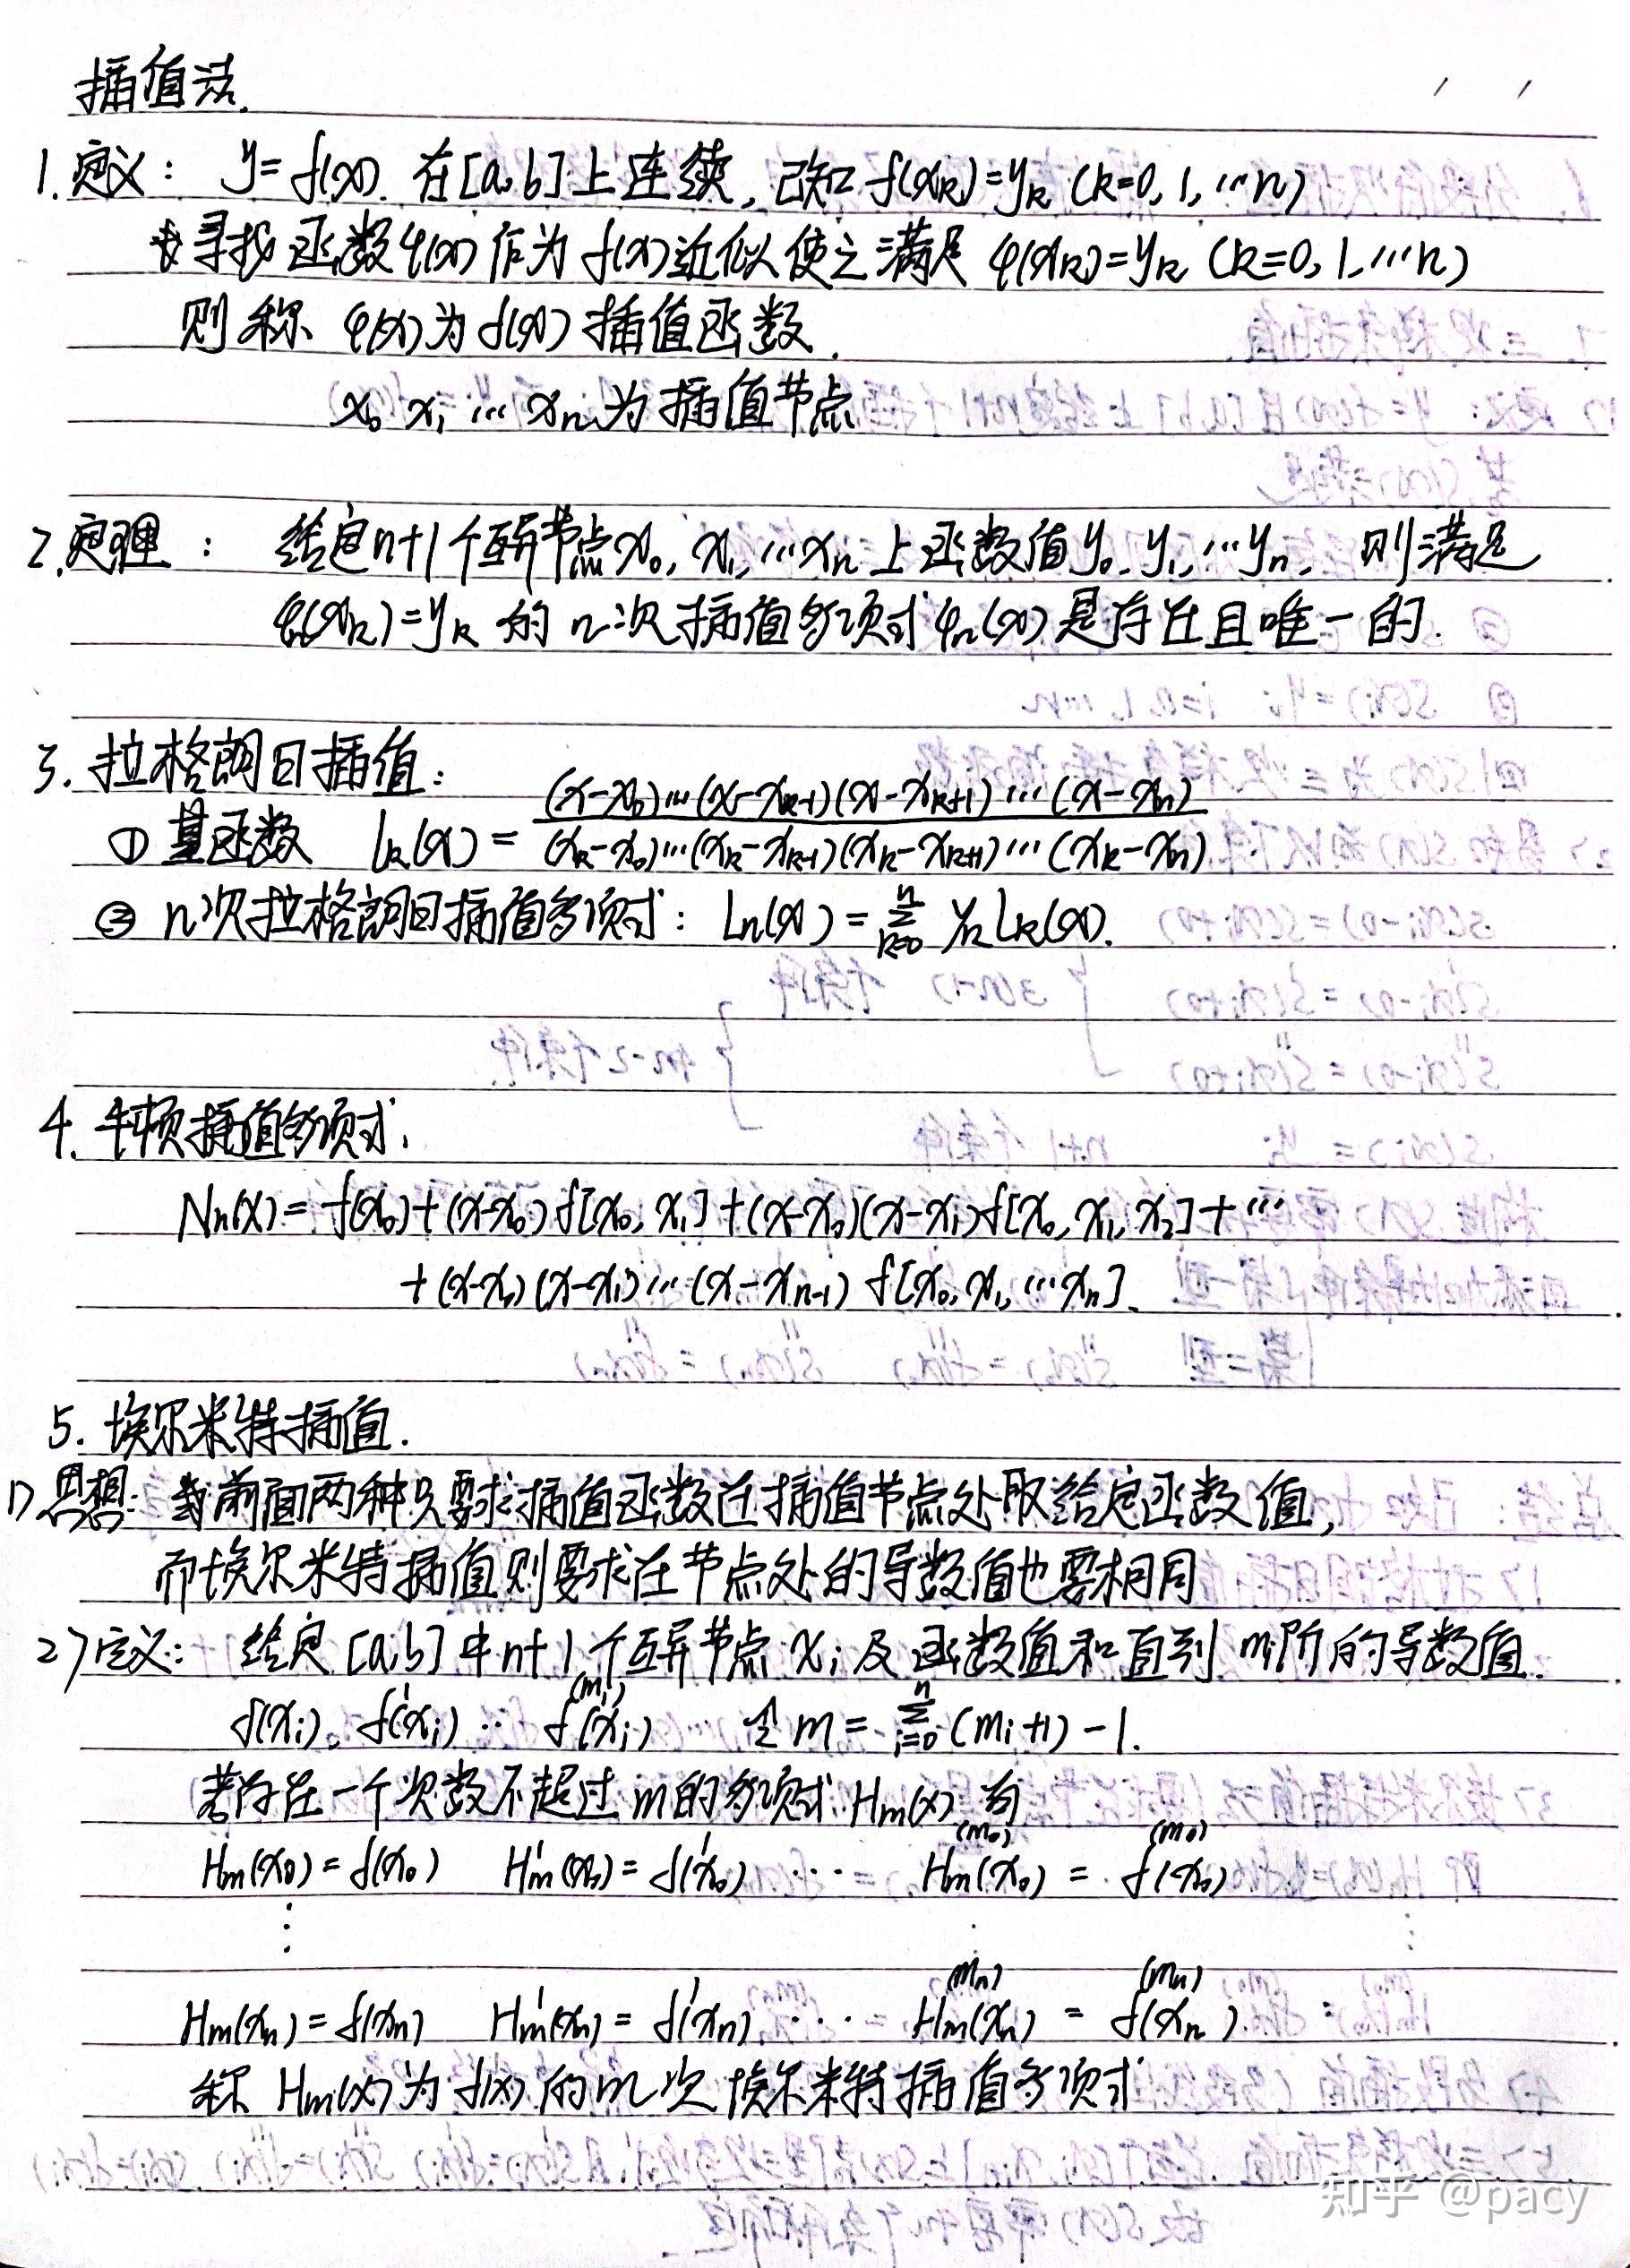 插值法.
1.定义: y=f(x) 在[a,b]上连续, 已知 f(xₖ)=yₖ (k=0,1,…n)
寻找函数φ(x)作为f(x)近似使之满足 φ(xₖ)=yₖ (k=0,1,…n)
则称 φ(x)为f(x)插值函数.
x₀ x₁ … xₙ 为插值节点
2.定理: 给定n+1个互异节点x₀, x₁, …xₙ上函数值y₀, y₁, …yₙ, 则满足
φₙ(xₖ)=yₖ 的n次插值多项式φₙ(x)是存在且唯一的.
3. 拉格朗日插值:
① 基函数 lₖ(x) = (x-x₀)…(x-xₖ₋₁)(x-xₖ₊₁)…(x-xₙ) / (xₖ-x₀)…(xₖ-xₖ₋₁)(xₖ-xₖ₊₁)…(xₖ-xₙ)
② n次拉格朗日插值多项式: Lₙ(x) = Σₖ₌₀ⁿ yₖ lₖ(x).
4. 牛顿插值多项式.
Nₙ(x) = f(x₀)+(x-x₀)f[x₀, x₁]+(x-x₀)(x-x₁)f[x₀, x₁, x₂]+…
+(x-x₀)(x-x₁)…(x-xₙ₋₁) f[x₀, x₁, …xₙ].
5. 埃尔米特插值.
1) 思想: 前面两种只要求插值函数在插值节点处取给定函数值,
而埃尔米特插值则要求在节点处的导数值也要相同
2) 定义: 给定[a,b]中n+1个互异节点xᵢ及函数值和直到mᵢ阶的导数值.
f(xᵢ), f'(xᵢ) … f⁽ᵐⁱ⁾(xᵢ) 令 m = Σᵢ₌₀ⁿ (mᵢ+1) - 1.
若存在一个次数不超过m的多项式Hₘ(x)有
Hₘ(x₀) = f(x₀) Hₘ'(x₀) = f'(x₀) … Hₘ⁽ᵐ⁰⁾(x₀) = f⁽ᵐ⁰⁾(x₀)
⋮
Hₘ(xₙ) = f(xₙ) Hₘ'(xₙ) = f'(xₙ) … Hₘ⁽ᵐⁿ⁾(xₙ) = f⁽ᵐⁿ⁾(xₙ).
称 Hₘ(x)为f(x)的m次埃尔米特插值多项式
知乎 @pacy